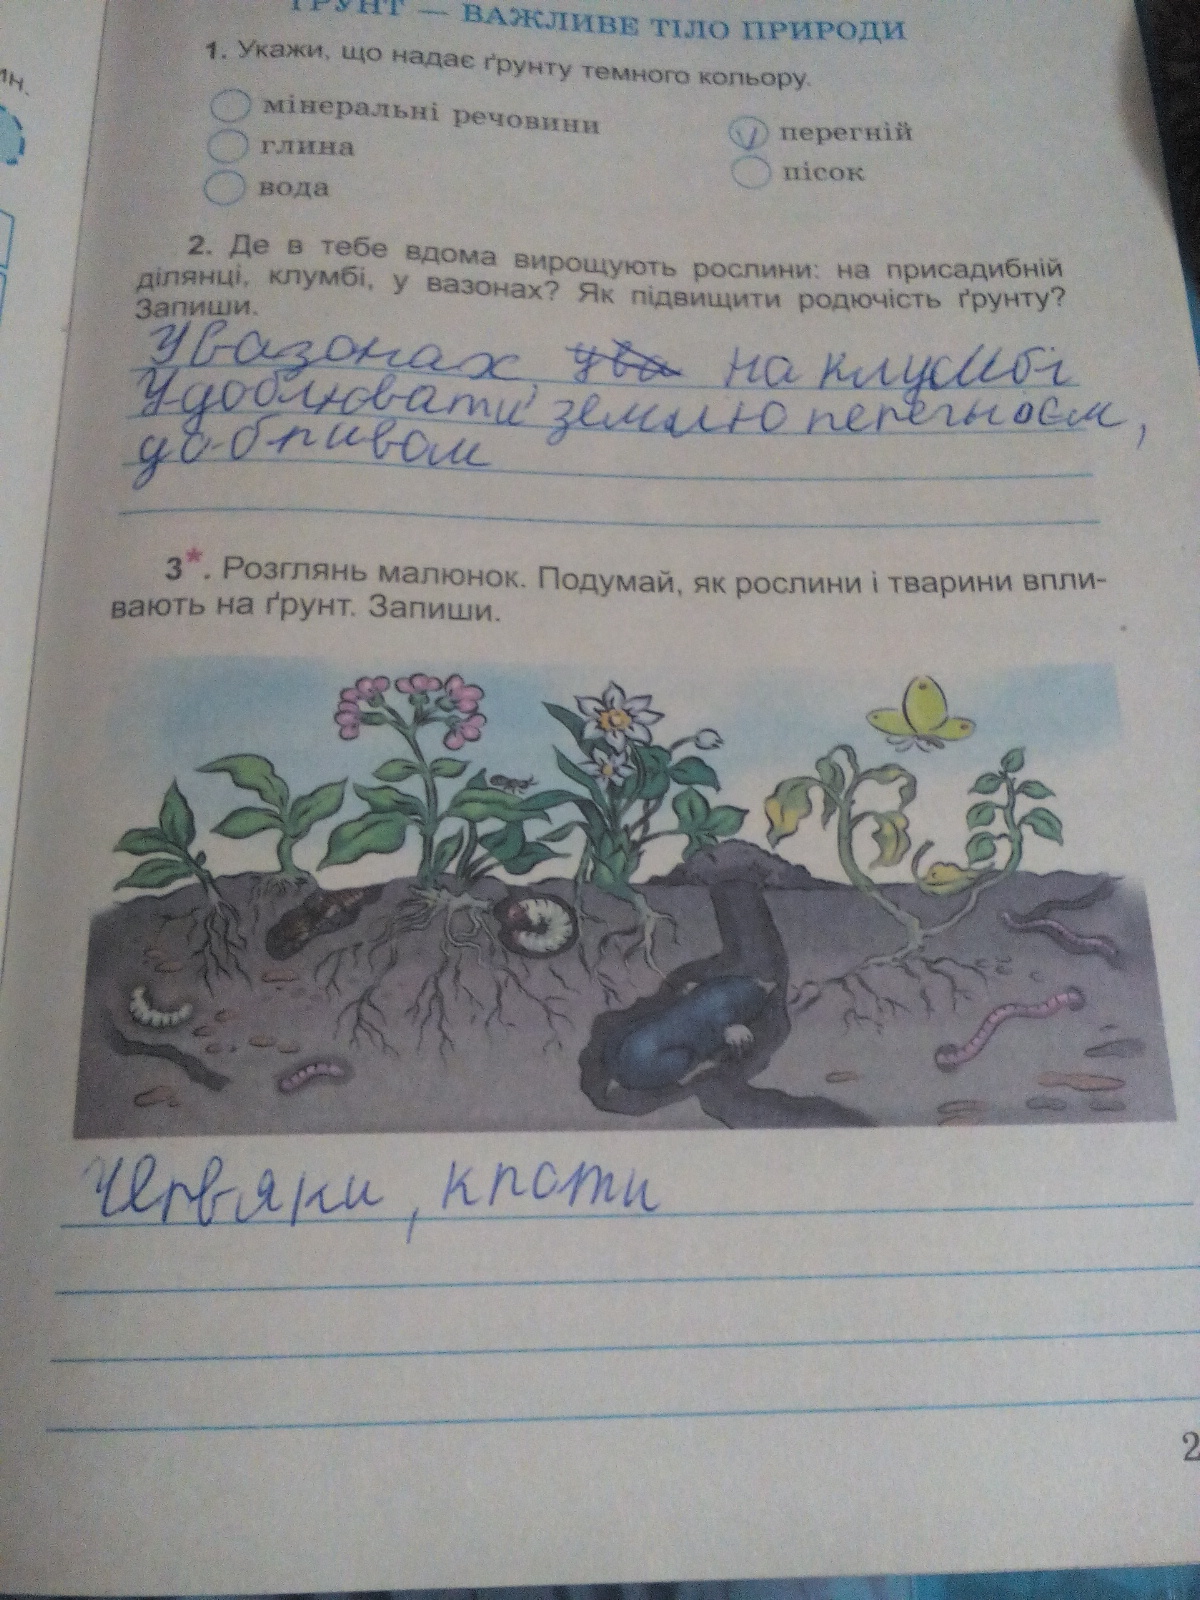 ҐРУНТ — ВАЖЛИВЕ ТІЛО ПРИРОДИ
ин.
1. Укажи, що надає ґрунту темного кольору.
мінеральні речовини
перегній
глина
пісок
вода
2. Де в тебе вдома вирощують рослини: на присадибній
ділянці, клумбі, у вазонах? Як підвищити родючість ґрунту?
Запиши.
У вазонах, ува на клумбі
Удоблювати землю перегноєм,
добривом
3*. Розглянь малюнок. Подумай, як рослини і тварини впли-
вають на ґрунт. Запиши.
Червяки, кроти
2